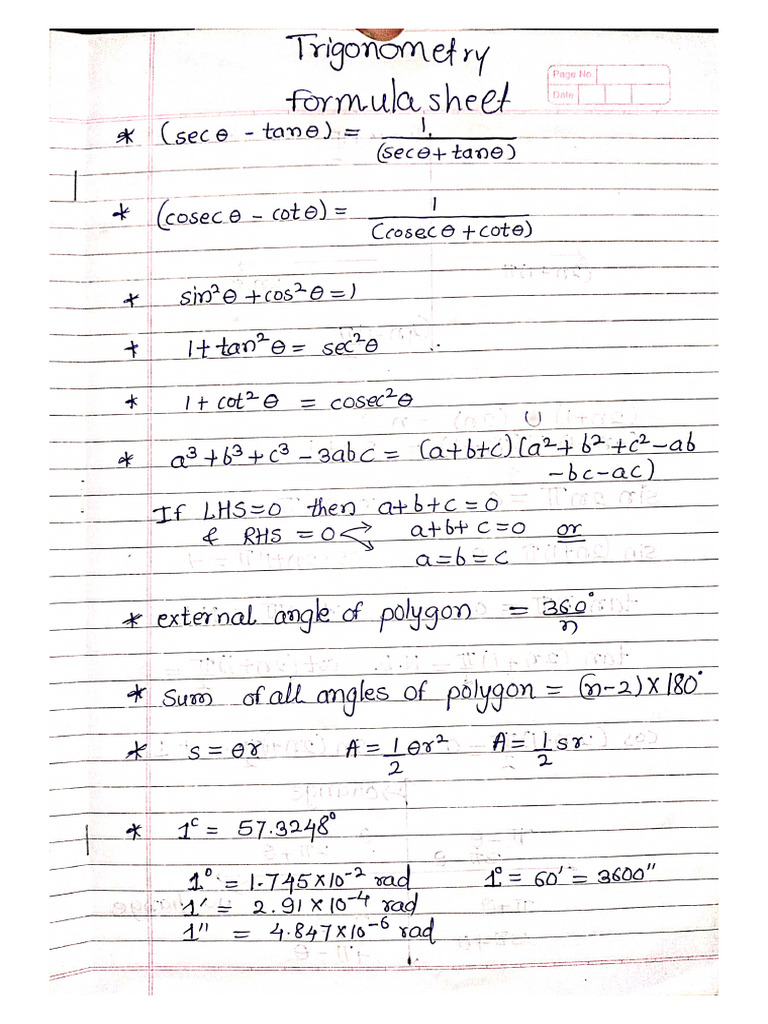 Trigonometry
formula sheet
Page No
Date
* (secθ - tanθ) = 1/(secθ + tanθ)
* (cosecθ - cotθ) = 1/(cosecθ + cotθ)
* sin²θ + cos²θ = 1
* 1 + tan²θ = sec²θ
* 1 + cot²θ = cosec²θ
* a³ + b³ + c³ - 3abc = (a+b+c)(a² + b² + c² - ab
- bc - ac)
If LHS=0 then a+b+c=0
& RHS = 0 a+b+c=0 or
a=b=c
* external angle of polygon = 360°/n
* Sum of all angles of polygon = (n-2) × 180°
* s = θr A = 1/2 θr² A = 1/2 sr
* 1ᶜ = 57.3248°
1° = 1.745×10⁻² rad 1° = 60' = 3600"
1' = 2.91 × 10⁻⁴ rad
1" = 4.847×10⁻⁶ rad